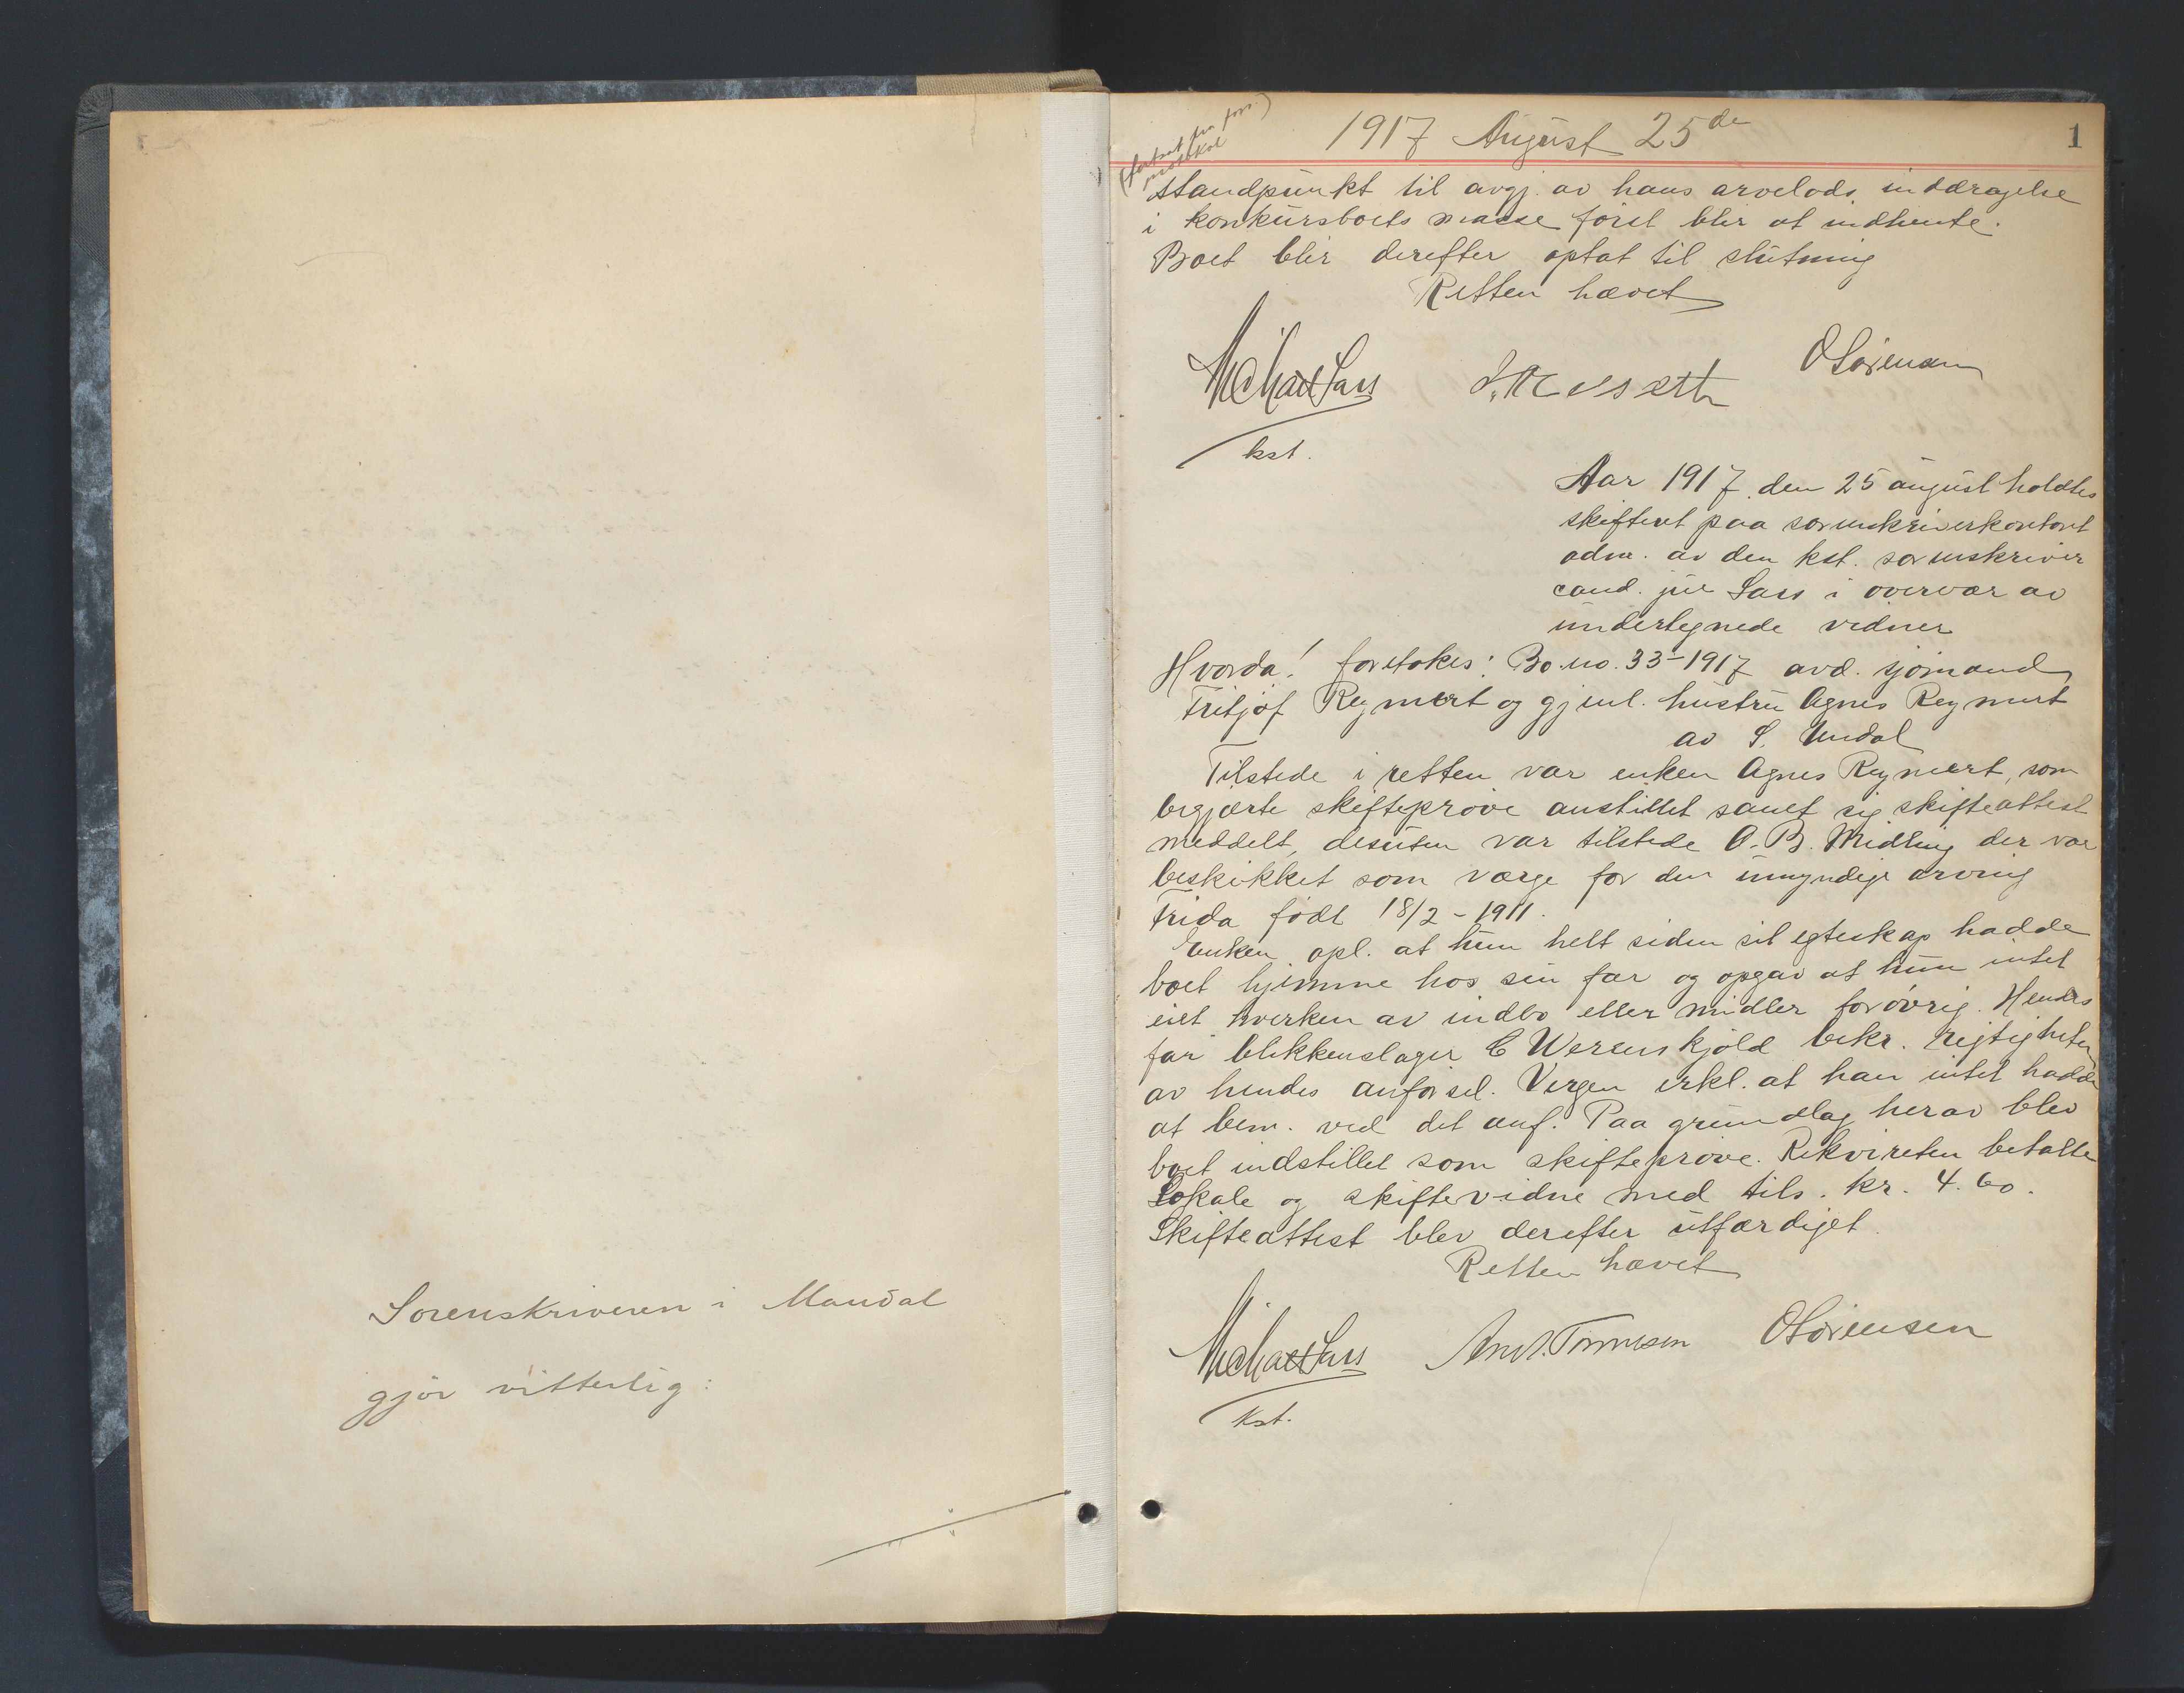 Sorenskriveren i Mandal
gjör vitterlig:
(fortsat fra forr.
protokol)
1917 August 25de
1
standpunkt til avgj. av hans arvelods inddragelse
i konkursboets masse först blir at indhente.
Boet blir derefter optat til slutning
Retten hævet
Michael Lass
OSörensen
kst.
Aar 1917 den 25 august holdtes
skifteret paa sorenskriverkontoret
adm. av den kst. sorenskriver
cand. jur Lass i overvær av
undertegnede vidner
Hvorda! foretokes: Bo. no. 33-1917 avd. sjömand
Fritjöf Reymert og gjenl. hustru Agnes Reymert
av S. Undal
Tilstede i retten var enken Agnes Reymert, som
begjærte skiftepröve anstillet samt sig skifteattest
meddelt, desuten var tilstede O. B. Midling der var
beskikket som værge for den umyndige arving
Frida födt 18/2-1911.
Enken opl. at hun helt siden sit egteskap hadde
boet hjemme hos sin far og opgav at hun intet
eiet hverken av indbo eller midler forövrig. Hendes
far blikkenslager C Werenskjöld bekr. rigtigheten
av hendes anförsel. Vergen erkl. at han intet hadde
at bem. ved det anf. Paa grundlag herav blev
boet indstillet som skiftepröve. Rekvirenten betalte
Lokale og skiftevidne med tils. kr. 4.60.
Skifteattest blev derefter utfærdiget.
Retten hævet
Michael Lass
And. Tönnesen
OSörensen
Kst.